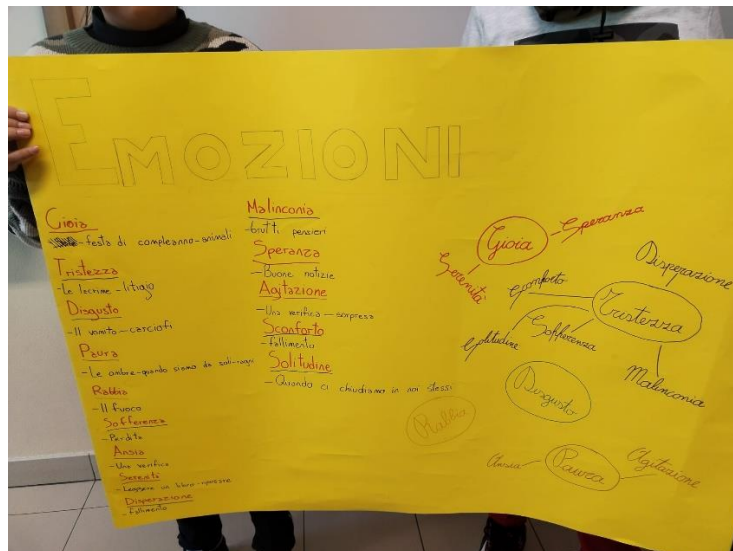 EMOZIONI
Gioia
-festa di compleanno-animali
Tristezza
-Le lacrime-litigio
Disgusto
-Il vomito-carciofi
Paura
-Le ombre-quando siamo da soli-ragni
Rabbia
-Il fuoco
Sofferenza
-Perdita
Ansia
-Una verifica
Serenità
-Leggere un libro-riposare
Disperazione
-Fallimento
Malinconia
-brutti pensieri
Speranza
-Buone notizie
Agitazione
-Una verifica-sorpresa
Sconforto
-fallimento
Solitudine
-Quando ci chiudiamo in noi stessi
Gioia
Speranza
Serenità
Tristezza
Disperazione
Sconforto
Solitudine
Sofferenza
Malinconia
Disgusto
Rabbia
Paura
Ansia
Agitazione